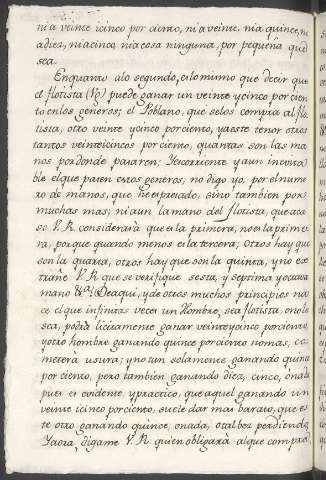 ni a veinte icinco por ciento, ni a veinte, ni a quince, ni
a diez, ni a cinco, ni a cosa ninguna, por pequeña que
sea.
Enquanto alo segundo, eslo mismo que decir que
el florista puede ganar un veinte ycinco por cien
to enlos generos; el Poblano, que selos compra al flo
rista, otro veinte ycinco porciento, ya este tenor otros
tantos veinteicincos por ciento, quantas son las ma
nos pordonde pasaren; Yescorriente y aun inevita
ble el que pasen estos generos, no digo yo, por el nume
ro de manos, que he expresado, sino tambien por
muchas mas; ni aun la mano del florista, que aca
so V. R. considerarà que es la primera, no es la prime
ra, porque quando menos es la tercera, otros hay que
son la quarta, otros hay que son la quinta, y no ex
trañe V. R. que se verifique sesta, y septima y octava
mano &a. Deaqui, y de otros muchos principios na
ce el que infinitas veces un Hombre, sea florista, ono lo
sea, podrà licitamente ganar veinteycinco porciento,
yotro hombre ganando quince porciento nomas, co
meterà usura; y no tan solamente ganando quince
por ciento, pero tambien ganando diez, cinco, ónada
pues es evidente ypractico, que aquel ganando un
veinte icinco porciento, suele dar mas barato, que es
te otro ganando quince, onada, otalbez perdiendo;
Yaora, digame V. R. quien obligarà al que compra